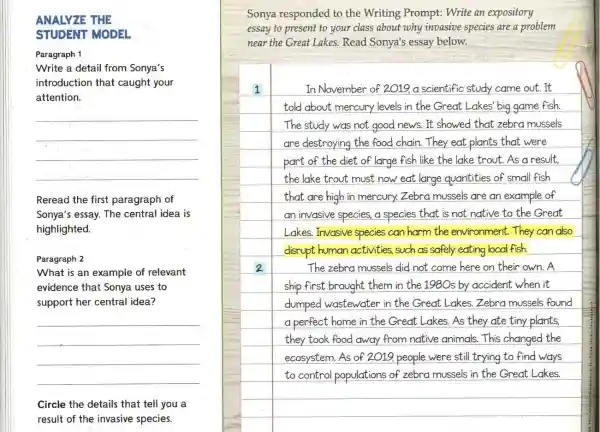 ANALYZE THE
STUDENT MODEL
Paragraph 1
Write a detail from Sonya's
introduction that caught your
attention.
Reread the first paragraph of
Sonya's essay. The central idea is
highlighted.
Paragraph 2
What is an example of relevant
evidence that Sonya uses to
support her central idea?
Circle the details that tell you a
result of the invasive species.
Sonya responded to the Writing Prompt: Write an expository
essay to present to your class about why invasive species are a problem
near the Great Lakes. Read Sonya's essay below.
1 In November of 2019, a scientific study came out. It
told about mercury levels in the Great Lakes' big game fish.
The study was not good news. It showed that zebra mussels
are destroying the food chain. They eat plants that were
part of the diet of large fish like the lake trout. As a result,
the lake trout must now eat large quantities of small fish
that are high in mercury. Zebra mussels are an example of
an invasive species, a species that is not native to the Great
Lakes. Invasive species can harm the environment. They can also
disrupt human activities, such as safely eating local fish.
2 The zebra mussels did not come here on their own. A
ship first brought them in the 1980s by accident when it
dumped wastewater in the Great Lakes. Zebra mussels found
a perfect home in the Great Lakes. As they ate tiny plants,
they took food away from native animals. This changed the
ecosystem. As of 2019, people were still trying to find ways
to control populations of zebra mussels in the Great Lakes.